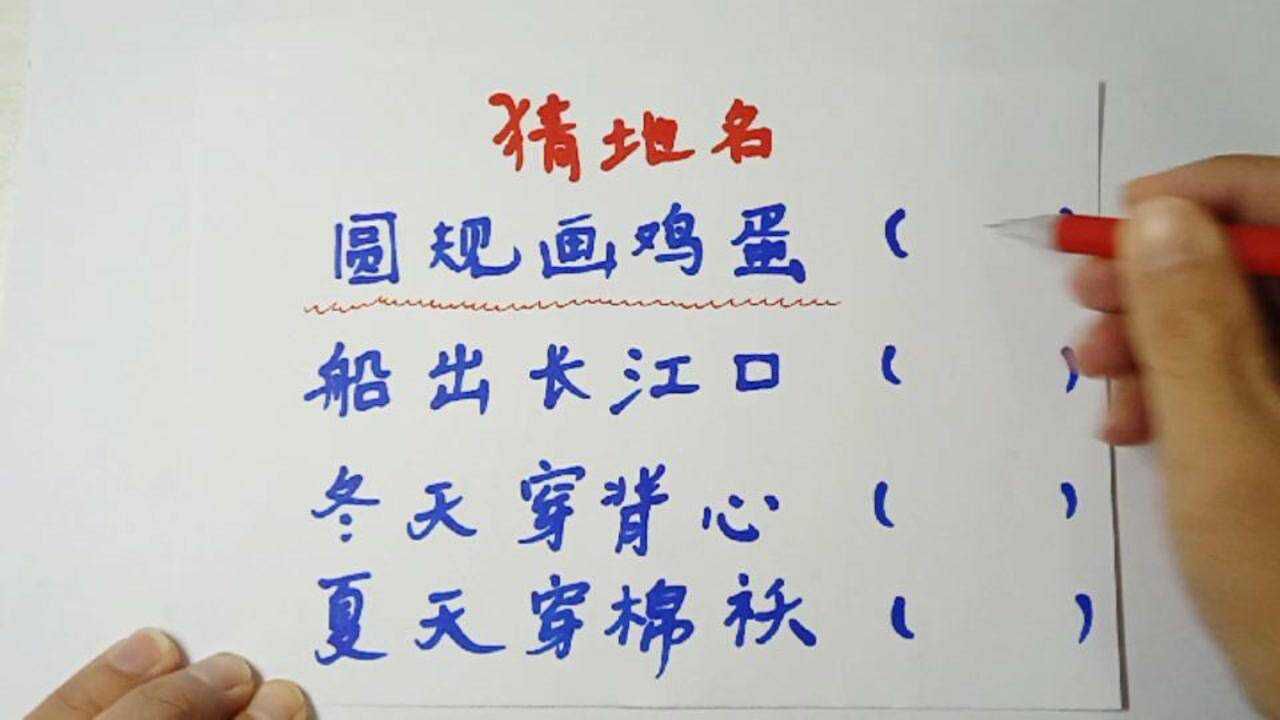 猜地名
圆规画鸡蛋( )
船出长江口( )
冬天穿背心( )
夏天穿棉袄( )